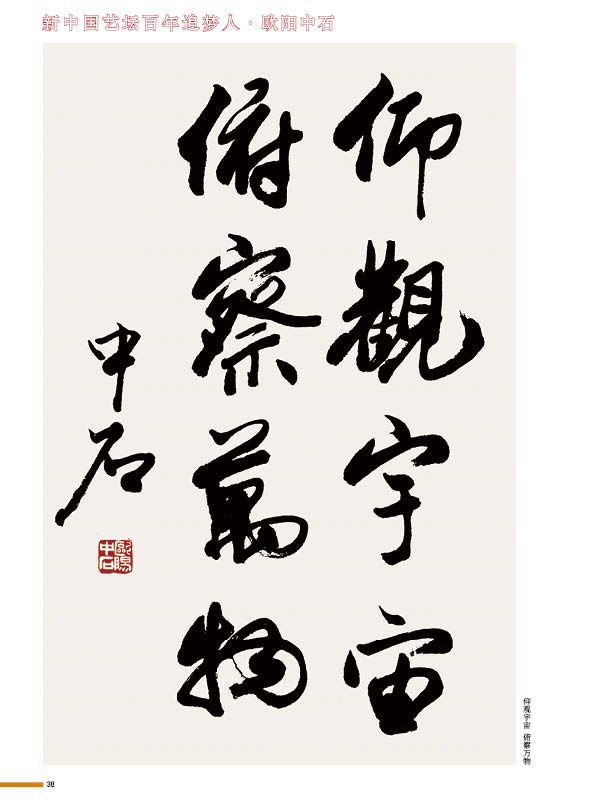 新中国艺坛百年追梦人·欧阳中石
仰觀宇宙
俯察萬物
中石
歐陽中石
仰观宇宙 俯察万物
38